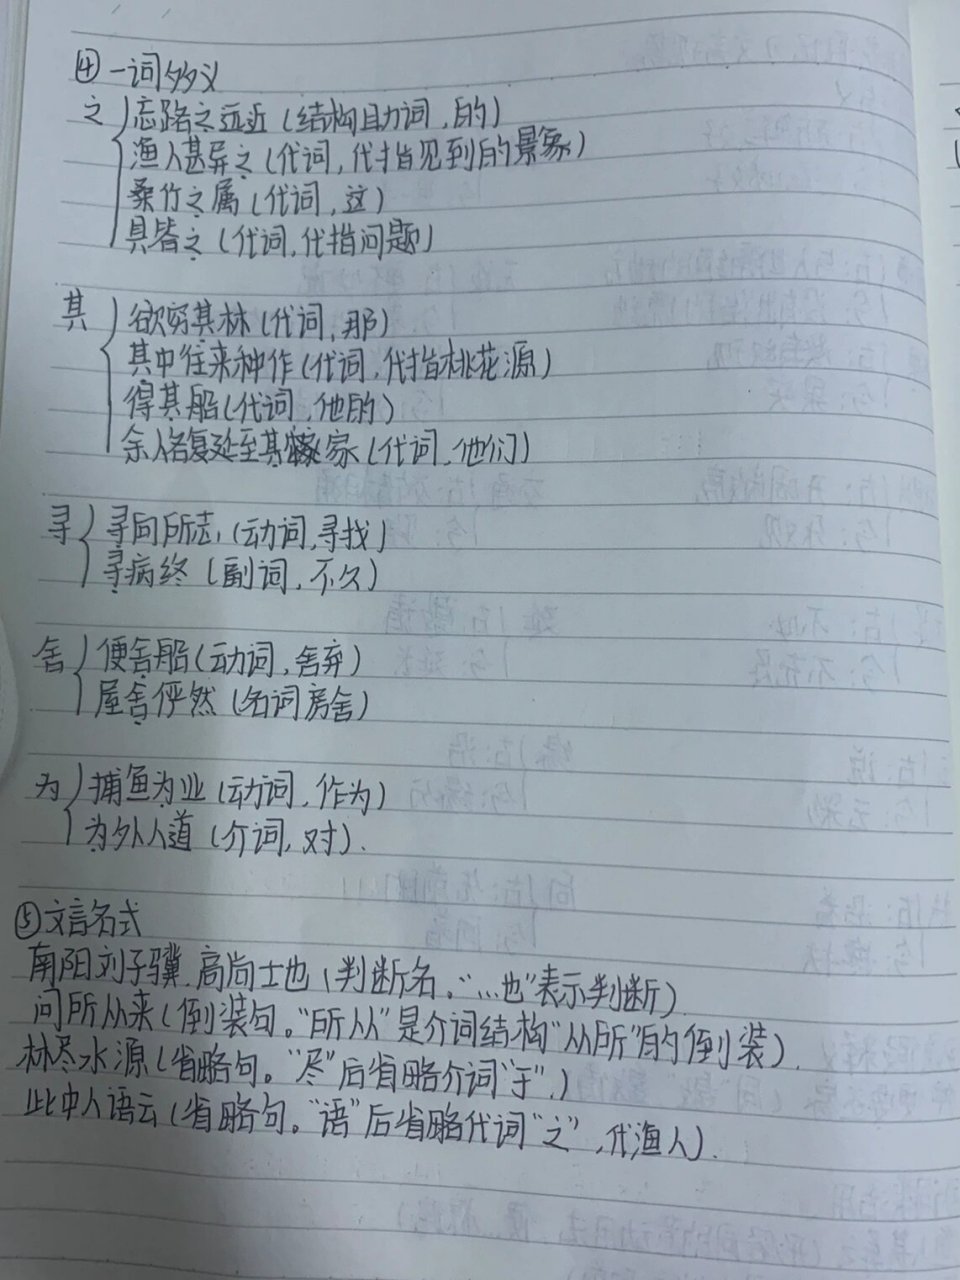 ④一词多义
之 忘路之远近(结构助词,的)
渔人甚异之(代词,代指见到的景象)
桑竹之属(代词,这)
具皆之(代词,代指问题)
其 欲穷其林(代词,那)
其中往来种作(代词,代指桃花源)
得其船(代词,他的)
余人各复延至其家(代词,他们)
寻 寻向所志,(动词,寻找)
寻病终(副词,不久)
舍 便舍船(动词,舍弃)
屋舍俨然(名词房舍)
为 捕鱼为业(动词,作为)
为外人道(介词,对).
⑤文言名式
南阳刘子骥.高尚士也(判断名。“…也”表示判断)
问所从来(倒装句。“所从”是介词结构“从所”的倒装).
林尽水源(省略句。“尽”后省略介词“于”.)
此中人语云(省略句。“语”后省略代词“之”,代渔人).